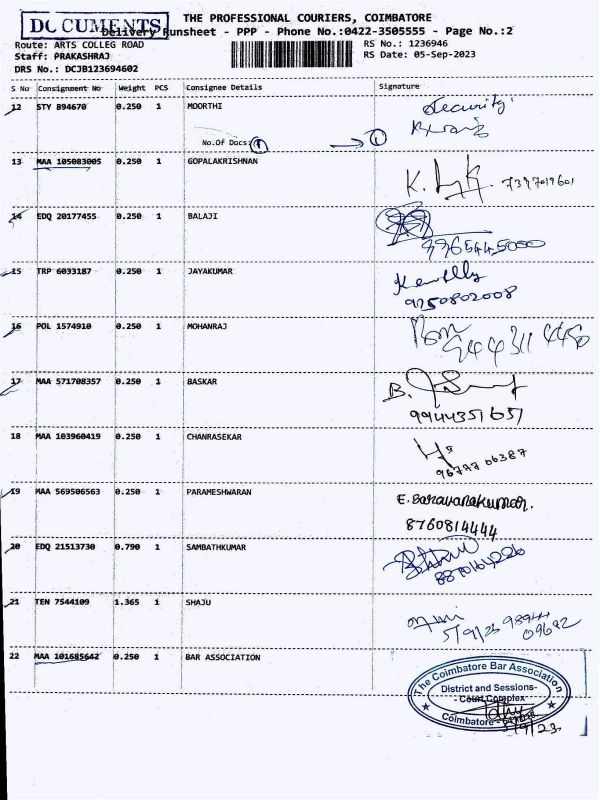 DOCUMENTS
THE PROFESSIONAL COURIERS, COIMBATORE
Delivery Runsheet - PPP - Phone No.:0422-3505555 - Page No.:2
Route: ARTS COLLEG ROAD
Staff: PRAKASHRAJ
DRS No.: DCJB123694602
RS No.: 1236946
RS Date: 05-Sep-2023
S No Consignment No Weight PCS Consignee Details Signature
12 STY 894670 0.250 1 MOORTHI Security
No.Of Docs: 1 → 1
13 MAA 105083005 0.250 1 GOPALAKRISHNAN K.
14 EDQ 20177455 0.250 1 BALAJI
9965445000
15 TRP 6033187 0.250 1 JAYAKUMAR
9250802008
16 POL 1574910 0.250 1 MOHANRAJ
944311 4450
17 MAA 571708357 0.250 1 BASKAR B.
9944351651
18 MAA 103960419 0.250 1 CHANRASEKAR
19 MAA 569506563 0.250 1 PARAMESHWARAN E. Saravanakumar.
8760814444
20 EDQ 21513730 0.790 1 SAMBATHKUMAR
21 TEN 7544109 1.365 1 SHAJU
5/9/23 98944
09692
22 MAA 101685642 0.250 1 BAR ASSOCIATION
The Coimbatore Bar Association
District and Sessions-
Court Complex
Coimbatore
5/9/23